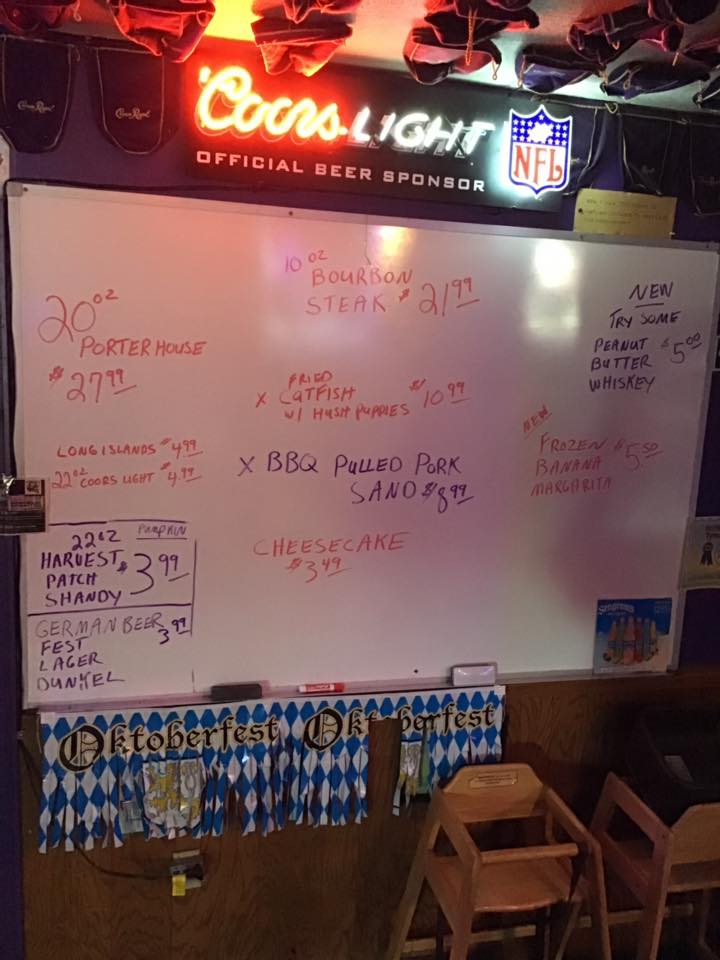 Crown Royal
Crown Royal
Coors LIGHT
NFL
OFFICIAL BEER SPONSOR
10 OZ
BOURBON
STEAK $21.99
20 OZ
PORTERHOUSE
$27.99
NEW
TRY SOME
PEANUT $5.00
BUTTER
WHISKEY
FRIED
X CATFISH $10.99
W/ HUSH PUPPIES
LONG ISLANDS $4.99
22OZ COORS LIGHT $4.99
X BBQ PULLED PORK
SAND $8.99
NEW
FROZEN $5.50
BANANA
MARGARITA
22OZ PUMPKIN
HARVEST $3.99
PATCH
SHANDY
CHEESECAKE
$3.49
GERMAN BEER 3.99
FEST
LAGER
DUNKEL
SMIRNOFF
Oktoberfest Oktoberfest